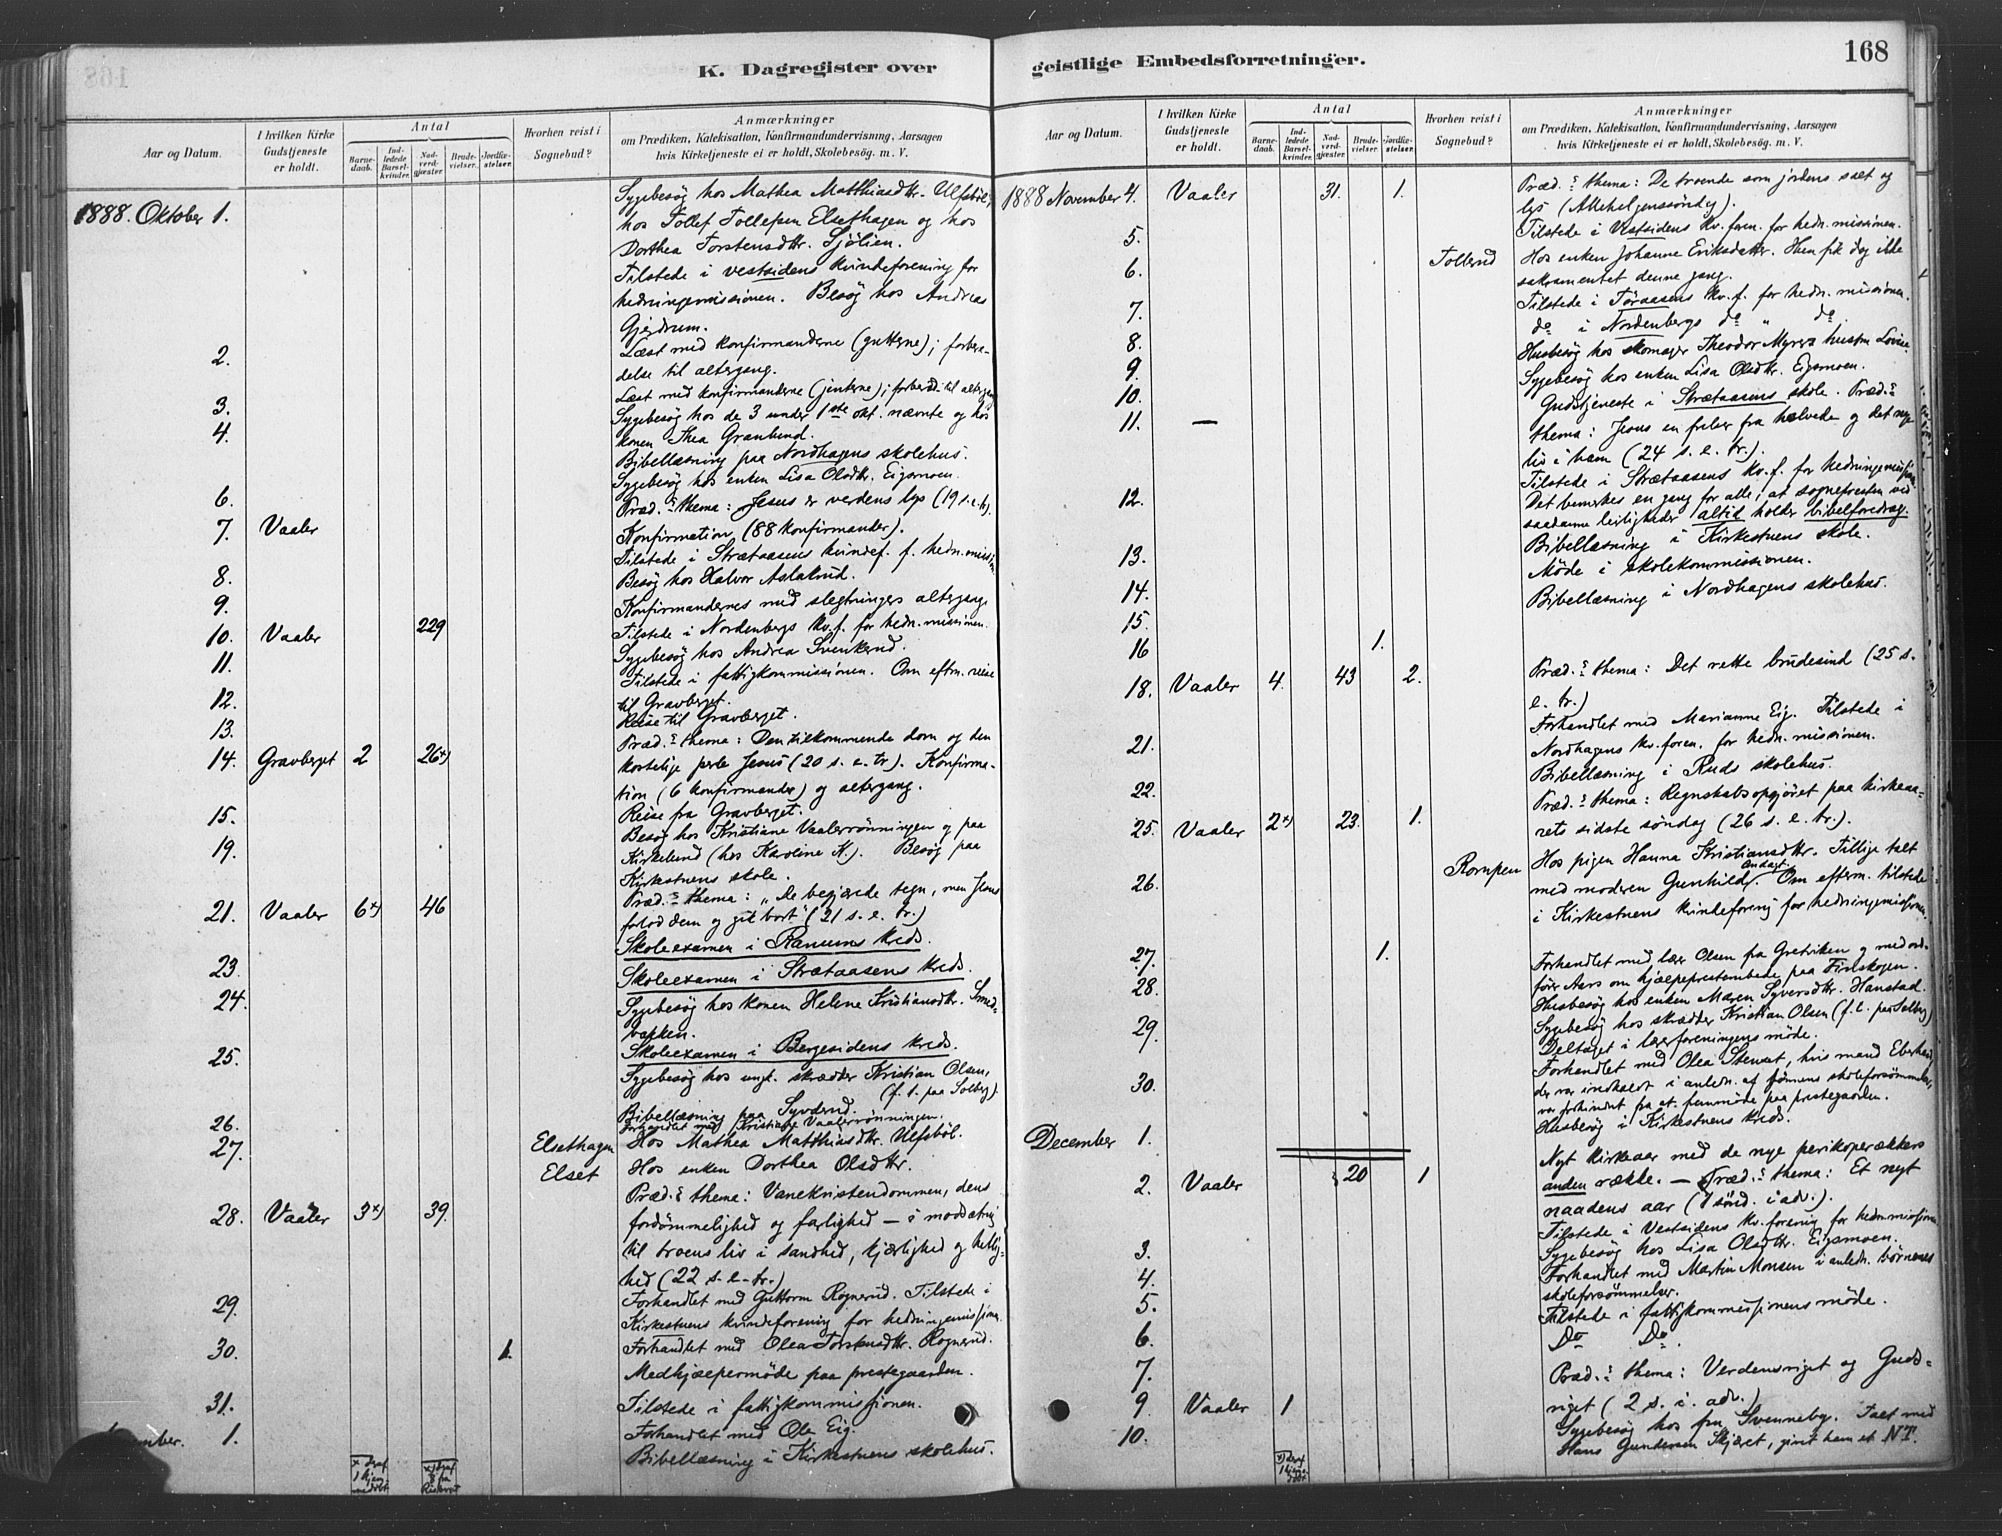 K. Dagregister over
Aar og Datum.
I hvilken Kirke Gudstjeneste er holdt.
Antal
Barnedaab.
Indledede Barselkvinder.
Nadverdgjæster.
Brudevielser.
Jordfæstelser.
Hvorhen reist i Sognebud?
Anmærkninger
om Prædiken, Katekisation, Konfirmandundervisning, Aarsagen
hvis Kirketjeneste ei er holdt, Skolebesøg. m. V.
1888. Oktober 1. Sygebesøg hos Mathea Matthiasdtr. Ulfsböl,
hos Tollef Tollefsen Elsethagen og hos
Dorthea Torstensdtr. Sjölien.
Tilstede i vestsidens kvindeforening for
hedningemissionen. Besøg hos Andreas
Gjerdrum.
2. Læst med konfirmanderne (gutterne); forbere-
delse til altergang.
3. Læst med konfirmanderne (jenterne); forbered. til altergang
4. Sygebesøg hos de 3 under 1ste okt. nævnte og hos
konen Thea Granlund.
Bibellæsning paa Nordhagens skolehus.
6. Sygebesøg hos enken Lisa Olsdtr. Eigsmoen.
7. Vaaler Præd.s thema: Jesus er verdens lys (19 s. e. tr).
Konfirmation (88 konfirmander).
8. Tilstede i Strætaasens kvindef. f. hedn. mission
9. Besøg hos Halvor Aslakrud.
10. Vaaler 229 Konfirmandernes med slegtningers altergang.
11. Tilstede i Nordenbergs kv. f. for hedn. missionen.
Sygebesøg hos Andrea Svenkerud.
12. Tilstede i fattigkommissionen. Om eftm. reise
til Gravberget.
13. Reise til Gravberget.
14. Gravberget 2 26x) Præd.s thema: Den tilkommende dom og den
kostelige perle Jesus (20 s. e. tr). Konfirma-
tion (6 konfirmander) og altergang.
15. Reise fra Gravberget.
19. Besøg hos Kristiane Vaalerrönningen og paa
Kirkelund (hos Karoline K.). Besøg paa
Kirkestuens skole.
21. Vaaler 6x) 46 Præd.s thema: "De begjærede tegn, men Jesus
forlod dem og gik bort" (21 s. e. tr.)
Skoleexamen i Ranums kreds.
23. Skoleexamen i Strætaasens kreds.
24. Sygebesøg hos konen Helene Kristiansdtr. Smed-
bakken.
25. Skoleexamen i Bergesidens kreds.
Sygebesøg hos ungk. skrædder Kristian Olsen,
(f. l. paa Solberg)
26. Bibellæsning paa Syverud.
Forhandlet med Kristiane Vaalerrönningen.
27. Elsethagen Hos Mathea Matthiasdtr. Ulfsböl.
Elset Hos enken Dorthea Olsdtr.
28. Vaaler 3x) 39. Præd.s thema: Vanekristendommen, dens
fordömmelighed og farlighed – i modsætning
til troens liv i sandhed, kjærlighed og hellig-
hed (22 s. e. tr.)
29. Forhandlet med Guttorm Rognerud. Tilstede i
Kirkestuens kvindeforening for hedningemissionen
30. 1. Forhandlet med Olea Torstensdtr. Rognerud.
Medhjælpermöde paa prestegaarden.
31. Tilstede i fattigkommissionen.
1. Forhandlet med Ole Eig.
Bibellæsning i Kirkestuens skolehus.
geistlige Embedsforretninger.
168
Aar og Datum.
I hvilken Kirke Gudstjeneste er holdt.
Antal
Barnedaab.
Indledede Barselkvinder.
Nadverdgjæster.
Brudevielser.
Jordfæstelser.
Hvorhen reist i Sognebud?
Anmærkninger
om Prædiken, Katekisation, Konfirmandundervisning, Aarsagen
hvis Kirketjeneste ei er holdt, Skolebesøg. m. V.
1888 November 4. Vaaler 31. 1. Præd.s thema: De troende som jordens salt og
lys (Allehelgenssöndag).
5. Tilstede i Vestsidens kv. foren. for hedn. missionen.
6. Tollerud Hos enken Johanne Eriksdatter. Hun fik dog ikke
sakramentet denne gang.
7. Tilstede i Toraasens kv. f. for hedn. missionen.
8. do i Nordenbergs do " do
9. Husbesøg hos skomager Theodor Myrers hustru Lovise.
10. Sygebesøg hos enken Lisa Olsdtr. Eigsmoen.
11. — Gudstjeneste i Strætaasens skole. Præd.s
thema: Jesus en frelser fra helvede og det nye
liv i ham (24 s. e. tr.).
12. Tilstede i Strætaasens kv. f. for hedningemissionen.
Det bemerkes en gang for alle, at sognepresten ved
saadanne leiligheder altid holder bibelforedrag.
13. Bibellæsning i Kirkestuens skole.
14. Möde i skolekommissionen.
15. Bibellæsning i Nordhagens skolehus.
16 1.
18. Vaaler 4. 43 2. Præd.s thema: Det rette brudesind (25 s.
e. tr.)
21. Forhandlet med Marianne Eig. Tilstede i
Nordhagens kv. foren. for hedn. missionen.
22. Bibellæsning i Ruds skolehus.
25. Vaaler 2x) 23. 1. Præd.s thema: Regnskabsopgjöret paa kirkeaa-
rets sidste söndag (26 s. e. tr.).
26. Rompen Hos pigen Hanna Kristiansdtr. Tillige talt
med moderen Gunhild. Om efterm. tilstede
i Kirkestuens kvindeforenig for hedningemissionen.
27. 1.
28. Forhandlet med lærer Olsen fra Gretviken og med ord-
förer Aars om hjælpeprestembede paa Finskogen.
Husbesøg hos enken Maren Syversdtr. Hanstad.
29. Sygebesøg hos skrædder Kristian Olsen (f. l. paa Solberg)
Deltaget i lærerforeningens möde.
30. Forhandlet med Olea Stensæt, hvis mand Eberhard,
der var indkaldt i anledn. af börnenes skoleforsömmelser,
var forhindret fra at fremmöde paa prestegaarden.
December 1. Husbesøg i Kirkestuens kreds.
Nyt kirkeaar med de nye perikoperækkers
2. Vaaler 20 1 anden række. — Præd.s thema: Et nyt
naadens aar (1 sönd. i adv.).
3. Tilstede i Vestsidens kv. forenig for hedn. missionen
4. Sygebesøg hos Lisa Olsdtr. Eigsmoen.
5. Forhandlet med Martin Monsen i anledn. börnenes
skoleforsömmelser.
6. Tilstede i fattigkommissionens möde.
7. Do Do.
9. Vaaler 1 Præd.s thema: Verdensriget og Guds-
riget (2 s. i. adv.)
10. Sygebesøg hos fru Svenneby. Talt med
Hans Gundersen Skjæret, givet ham et NT.